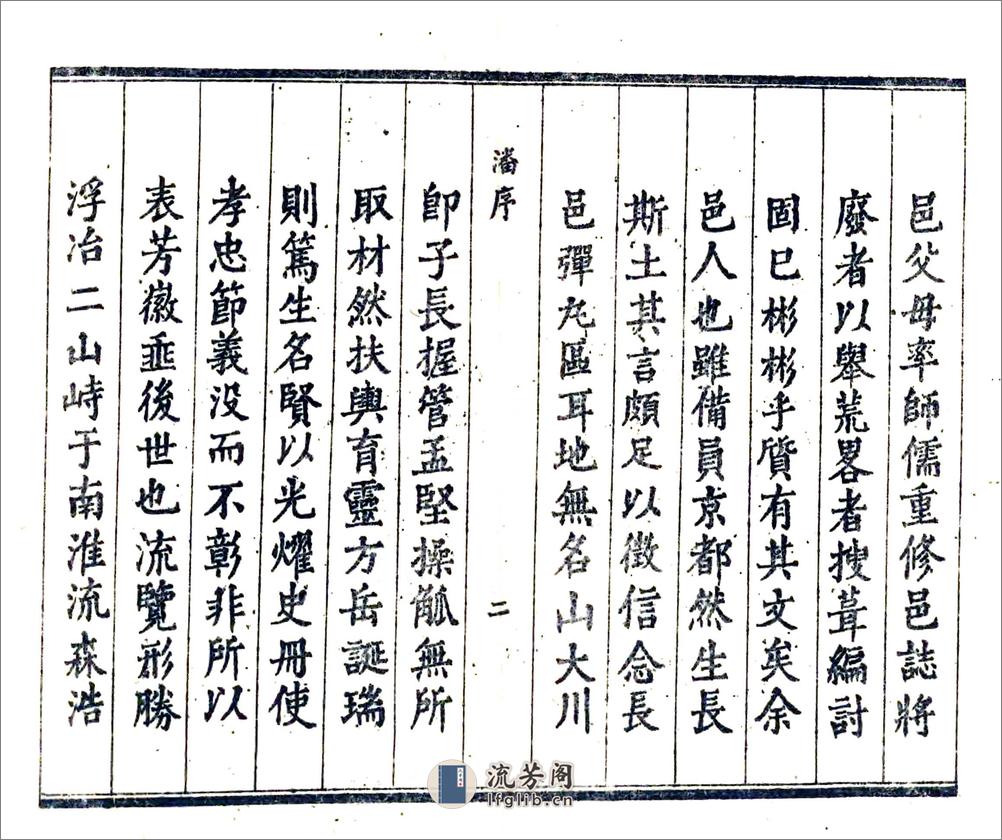 邑父母率師儒重修邑誌將
廢者以舉荒畧者搜葺編討
固已彬彬乎質有其文矣余
邑人也雖備員京都然生長
斯土其言頗足以徵信念長
邑彈丸區耳地無名山大川
潘序
二
卽子長握管孟堅操觚無所
取材然扶輿育靈方岳誕瑞
則篤生名賢以光耀史冊使
孝忠節義没而不彰非所以
表芳徽垂後世也流覽形勝
浮冶二山峙于南淮流森浩
流芳阁
lfglib.cn